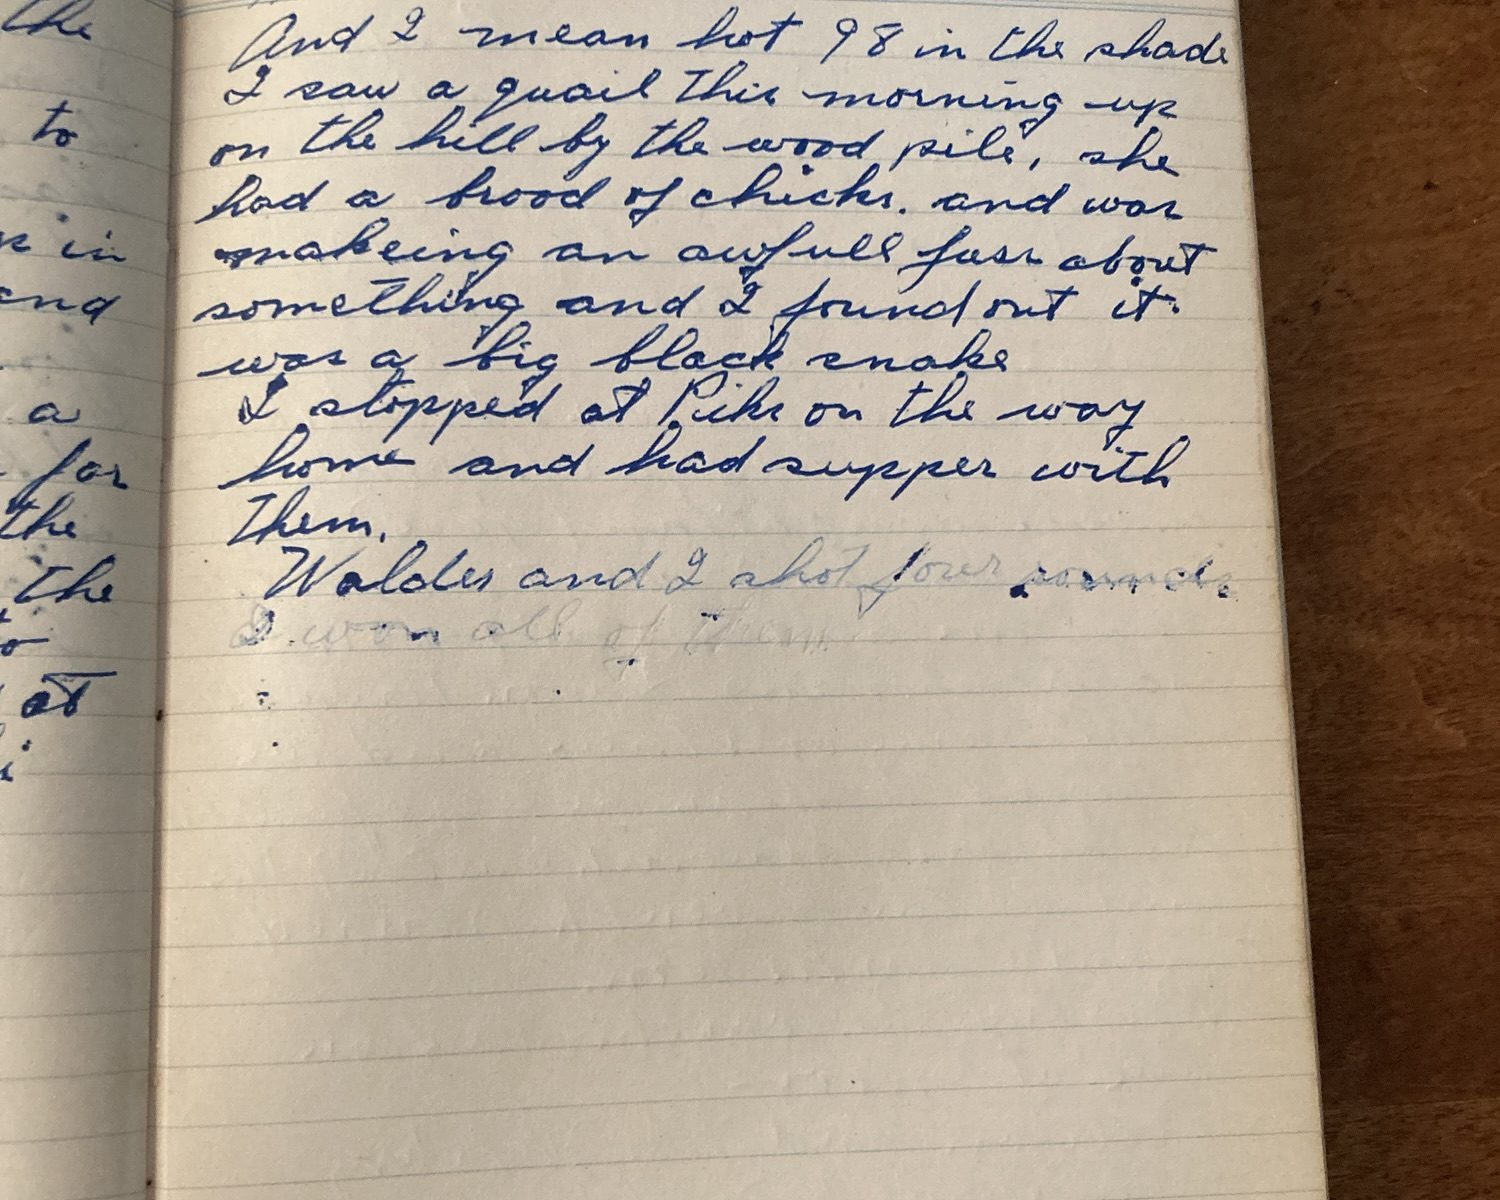 the
to
in
and
a
for
the
the
to
at
And I mean hot 98 in the shade
I saw a quail this morning up
on the hill by the wood pile, she
had a brood of chicks. and was
makeing an awfull fuss about
something and I found out it
was a big black snake
I stopped at Piks on the way
home and had supper with
them.
Waldes and I shot four rounds
I won all of them